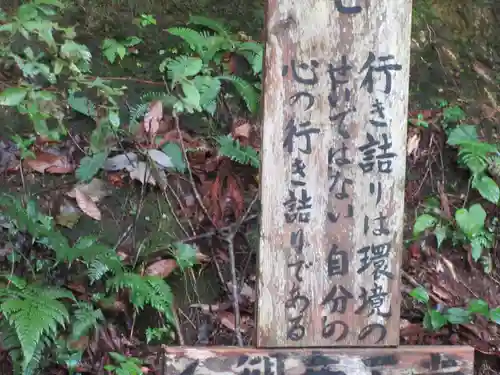 行き詰りは環境の
せいではない 自分の
心の行き詰りである